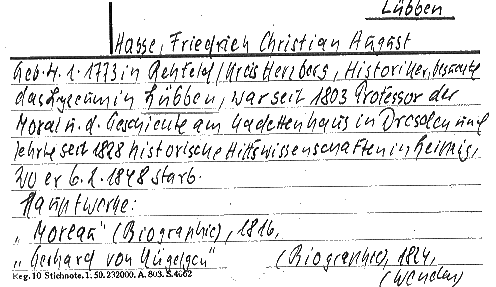 Lübben
Hasse, Friedrich Christian August
Geb. 4. 1. 1773 in Rehfeld/Kreis Herzberg, Historiker, besuchte
das Lyceum in Lübben, war seit 1803 Professor der
Moral u. d. Geschichte am Kadettenhaus in Dresden und
lehrte seit 1828 historische Hilfswissenschaften in Leipzig,
wo er 6. 2. 1848 starb.
Hauptwerke:
"Moreau" (Biographie), 1816,
"Gerhard von Kügelgen" (Biographie), 1824,
(Wenden)
Reg. 10 Stichnote. 1. 50. 232000. A. 803. S. 4662